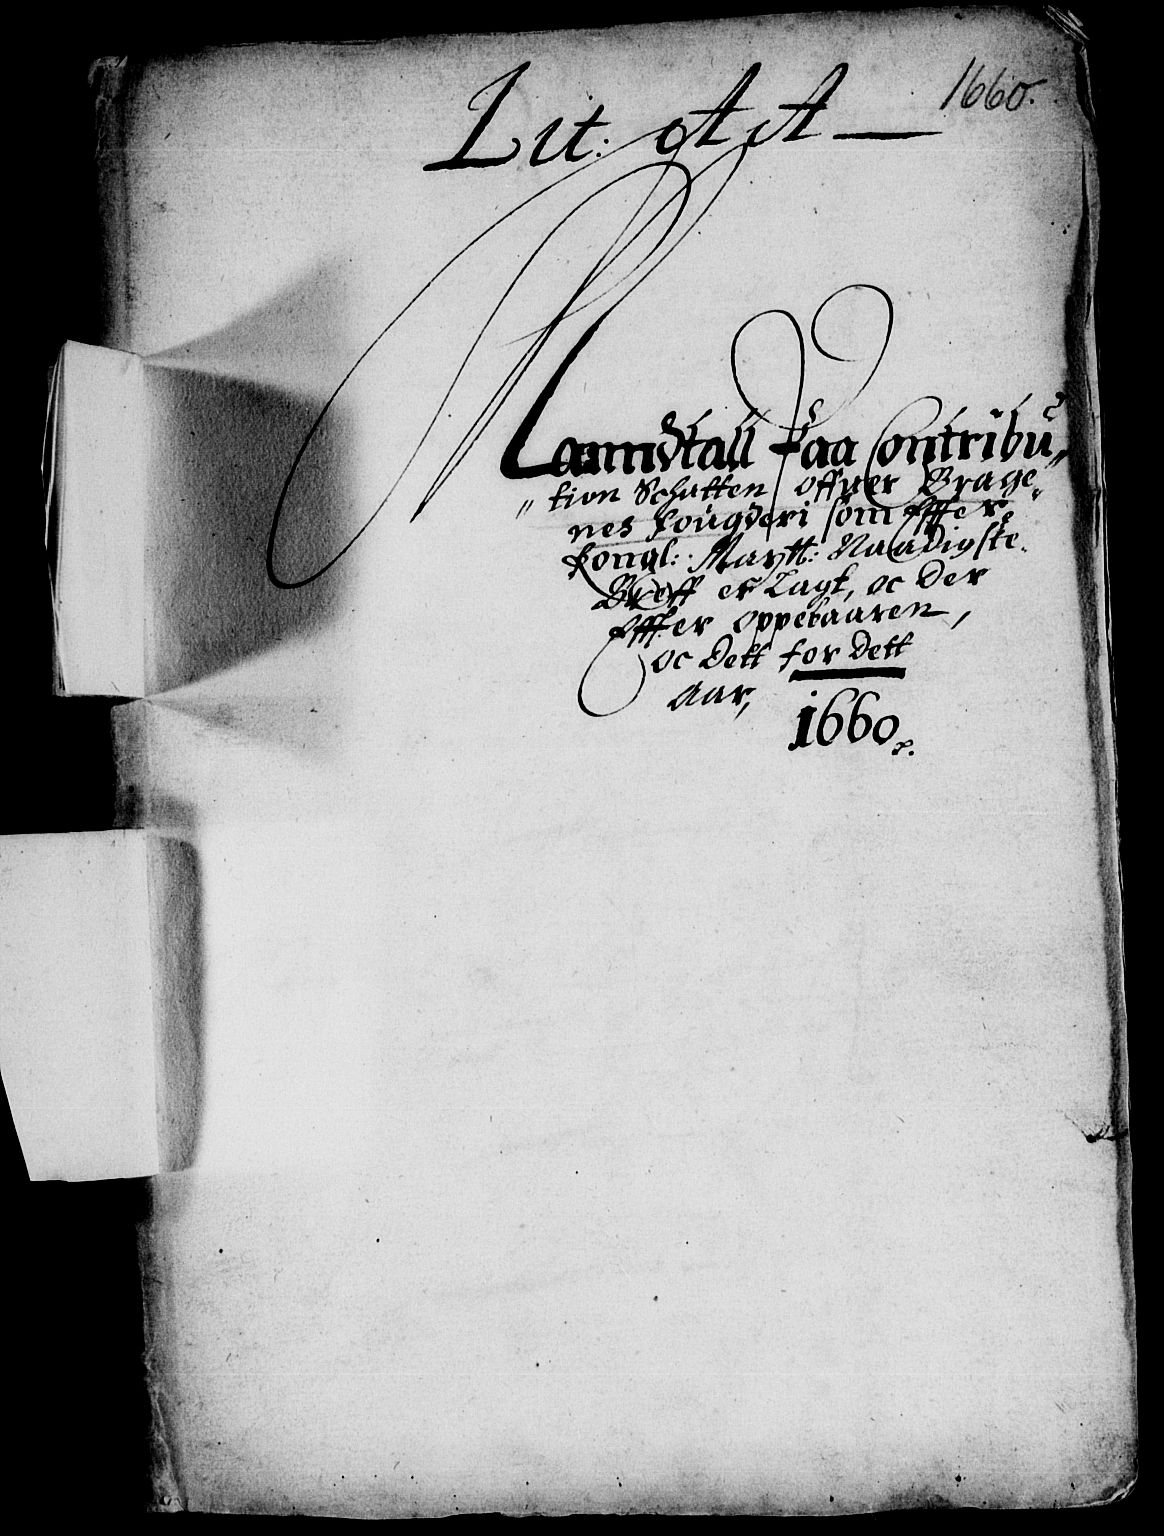 Lit: A A —
1660.
Manndtall Paa Contribu„
„tion Schatten offuer Brage„
nes fougderi som Effter
Kongl: Maytt: Naadigste
Breff er Lagt, oc der
Effter oppebaaren,
oc Dett for Dett
Aar,
1660